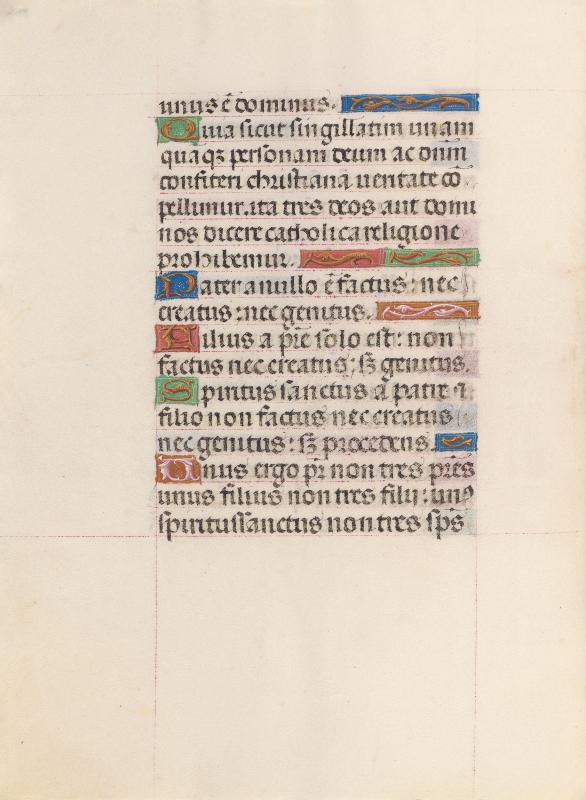 unus ē dominus.
Quia sicut singillatim unam
quāqꝫ personam deum ac dnm̄
confiteri christiana ueritate cō
pellimur. ita tres deos aut domi
nos dicere catholica religione
prohibemur.
Pater a nullo ē factus: nec
creatus: nec genitus.
Filius a pr̄e solo est: non
factus nec creatus: sꝫ genitus.
Spiritus sanctus a patre ⁊
filio non factus nec creatus
nec genitus: sꝫ procedens.
Unus ergo pr̄ non tres pr̄es
unus filius non tres filij: unꝰ
spiritussanctus non tres sp̄s